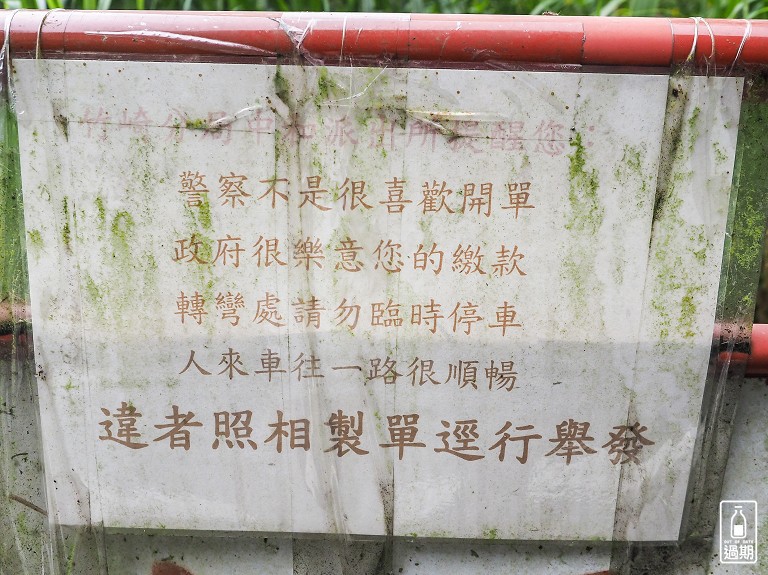 竹崎分局中和派出所提醒您：
警察不是很喜歡開單
政府很樂意您的繳款
轉彎處請勿臨時停車
人來車往一路很順暢
違者照相製單逕行舉發
OUT OF DATE
過期